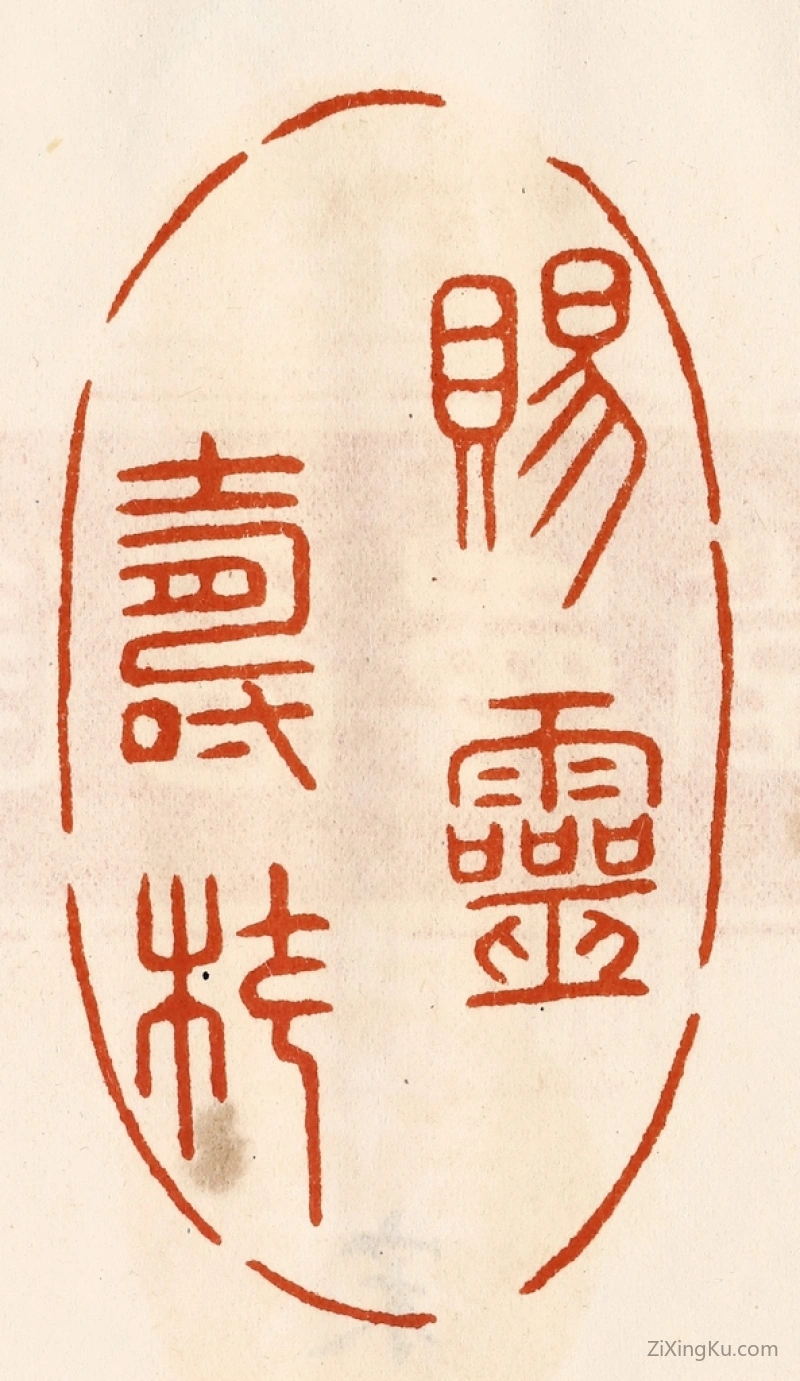 賜靈
壽杖
ZiXingKu.com